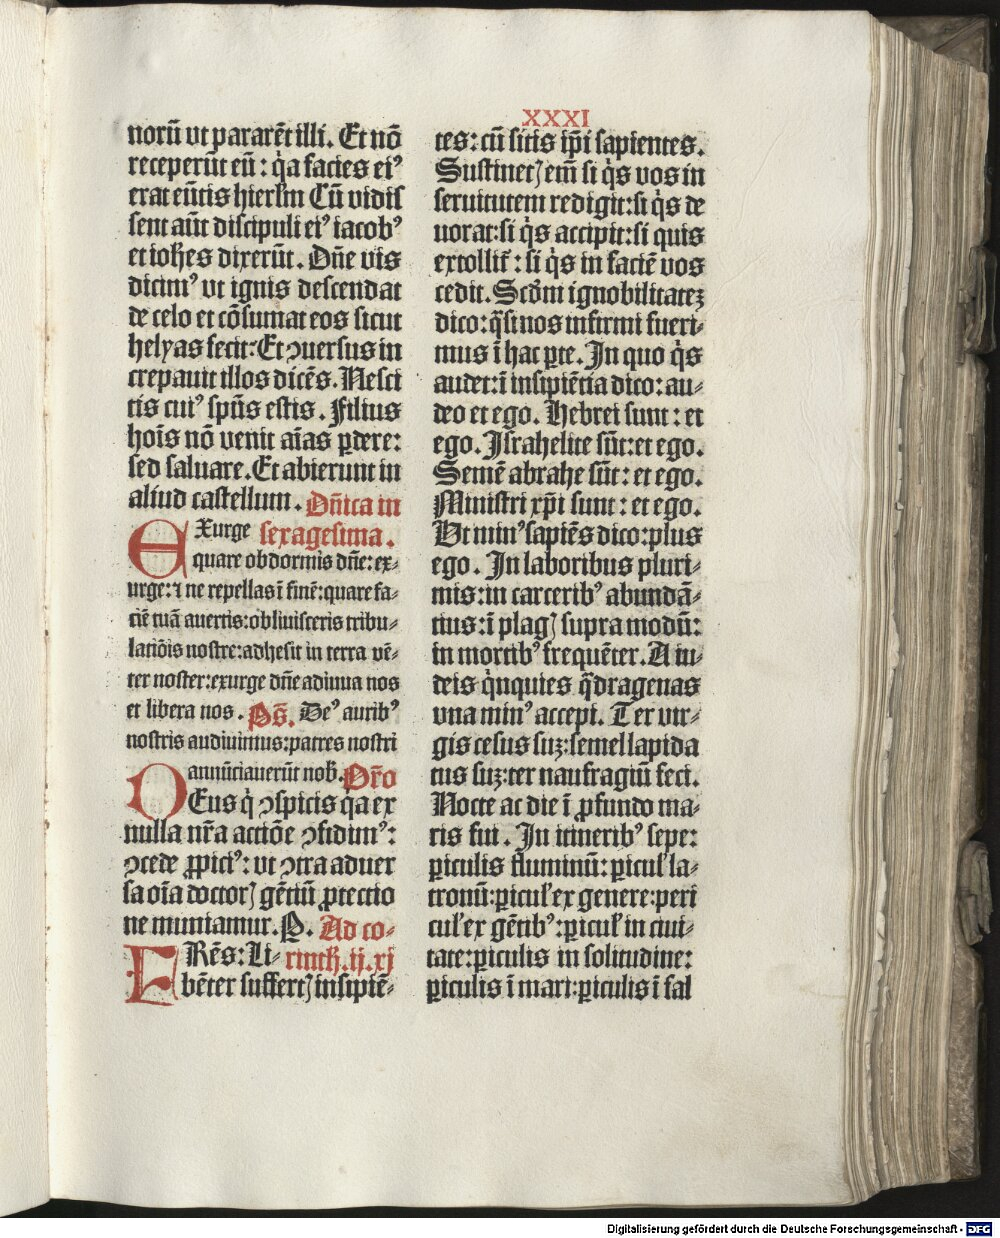 XXXI
norū vt pararēt illi. Et nō
receperūt eū : q̇a facies ei⁹
erat eūtis hierłm Cū vidiſ
ſent aūt diſcipuli ei⁹ iacob⁹
et ioħes dixerūt. Dñe vis
dicim⁹ vt ignis deſcendat
de celo et cōſumat eos ſicut
helyas fecit: Et ꝯuerſus in
crepauit illos dicēs. Neſci
tis cui⁹ ſpūs eſtis. Filius
hoīs nō venit aīas ꝑdere:
ſed ſaluare. Et abierunt in
aliud caſtellum. Dñica in
EXurge ſexageſima.
quare obdormis dñe: ex⸗
urge: ⁊ ne repellas ī finē: quare fa⸗
ciē tuā auertis: obliuiſceris tribu⸗
latiōis noſtre: adheſit in terra vē⸗
ter noſter: exurge dñe adiuua nos
et libera nos. Pſ̄. De⁹ aurib⁹
noſtris audiuimus: patres noſtri
annūciauerūt nob̄. Or̄o
DEus q̇ ꝯſpicis q̇a ex
nulla nr̄a actiōe ꝯfidim⁹:
ꝯcede ꝓpici⁹: vt ꝯtra aduer
ſa oīa doctoꝝ gētiū ꝓtectio
ne muniamur. P. Ad co⸗
FRēs: Li⸗ rintħ. ij. xj
bēter ſuffertꝭ inſipiē⸗
tes: cū ſitis ip̄i ſapientes.
Suſtinetꝭ em̄ ſi q̇s vos in
ſeruitutem redigit: ſi q̇s de
uorat: ſi q̇s accipit: ſi quis
extollit̄ : ſi q̇s in faciē vos
cedit. Scd̄m ignobilitateꝫ
dico: q̄ſi nos infirmi fueri⸗
mus ī hac ꝑte. In quo q̇s
audet: ī inſipiētia dico: au⸗
deo et ego. Hebrei ſunt : et
ego. Iſrahelite ſūt: et ego.
Semē abrahe ſūt : et ego.
Miniſtri xp̄i ſunt : et ego.
Vt min⁹ ſapiēs dico: plus
ego. In laboribus pluri⸗
mis: in carcerib⁹ abundā⸗
tius: ī plagꝭ ſupra modū:
in mortib⁹ frequēter. A iu⸗
deis q̇nquies q̄dragenas
vna min⁹ accepi. Ter vir⸗
gis ceſus ſuꝫ: ſemel lapida
tus ſuꝫ: ter naufragiū feci.
Nocte ac die ī ꝓfundo ma⸗
ris fui. In itinerib⁹ ſepe:
ꝑiculis fluminū: ꝑicuł la⸗
tronū: ꝑicuł ex genere: peri
cuł ex gētib⁹: ꝑicuł in ciui⸗
tate: ꝑiculis in ſolitudine:
ꝑiculis ī mari: ꝑiculis ī fal
Digitalisierung gefördert durch die Deutsche Forschungsgemeinschaft - DFG